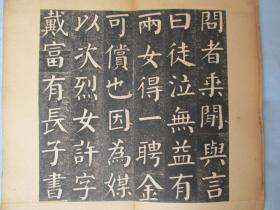 問者乘閒與言
曰徒泣無益有
兩女得一聘金
可償也因為媒
以次烈女許字
戴富有長子書